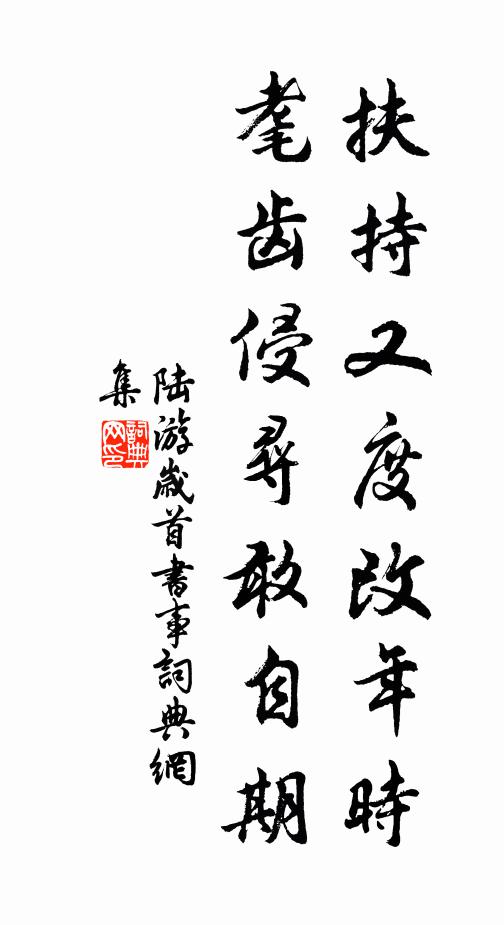 扶持又度改年時
耄齿侵尋敢自期
陆游歲首書事詞典網
集
詞典
网印